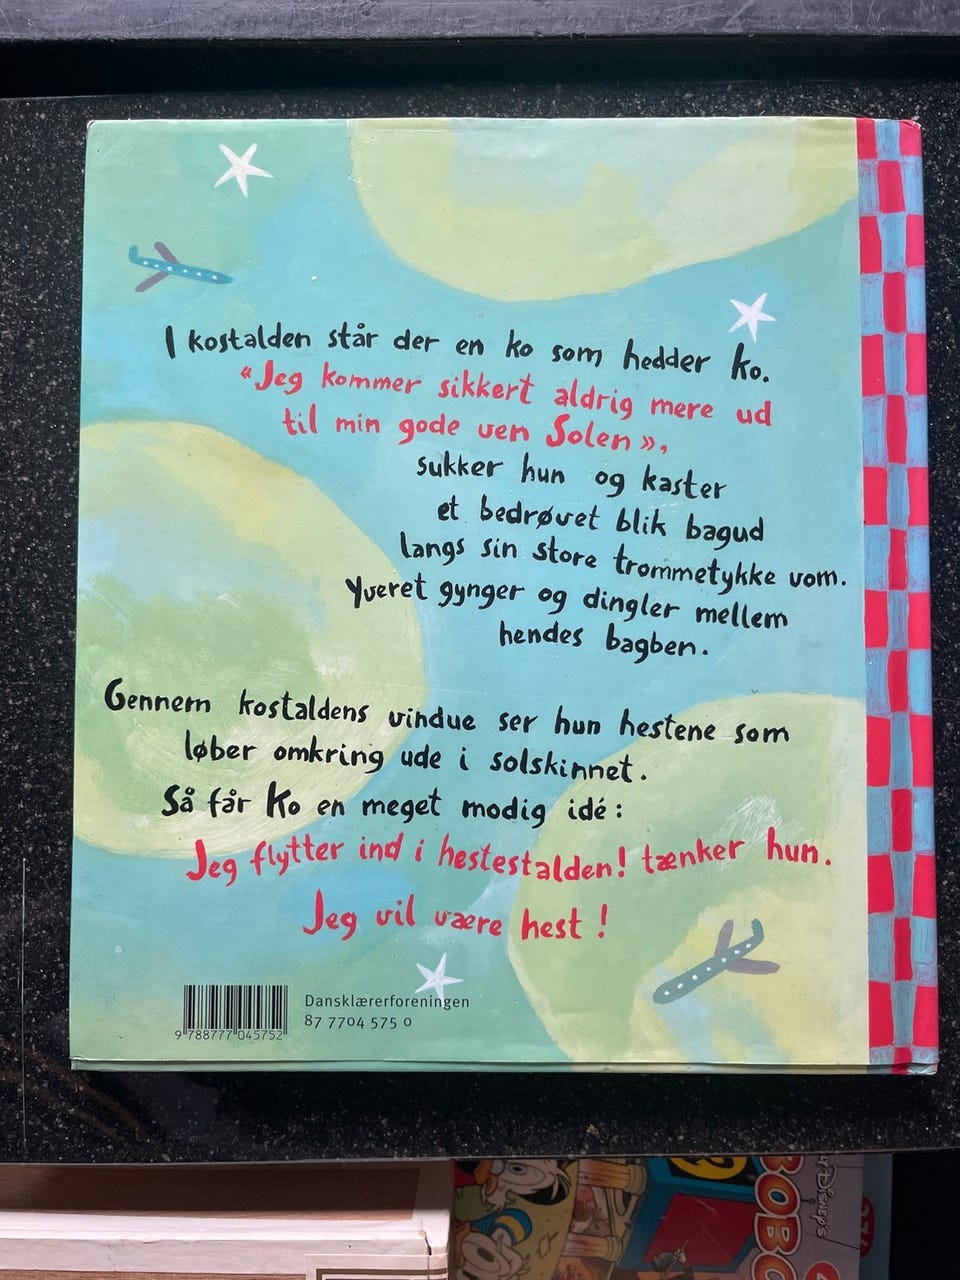 I kostalden står der en ko som hedder Ko.
«Jeg kommer sikkert aldrig mere ud
til min gode ven Solen»,
sukker hun og kaster
et bedrøvet blik bagud
langs sin store trommetykke vom.
Yveret gynger og dingler mellem
hendes bagben.
Gennem kostaldens vindue ser hun hestene som
løber omkring ude i solskinnet.
Så får Ko en meget modig idé:
Jeg flytter ind i hestestalden! tænker hun.
Jeg vil være hest!
Dansklærerforeningen
87 7704 575 0
9 788777 045752